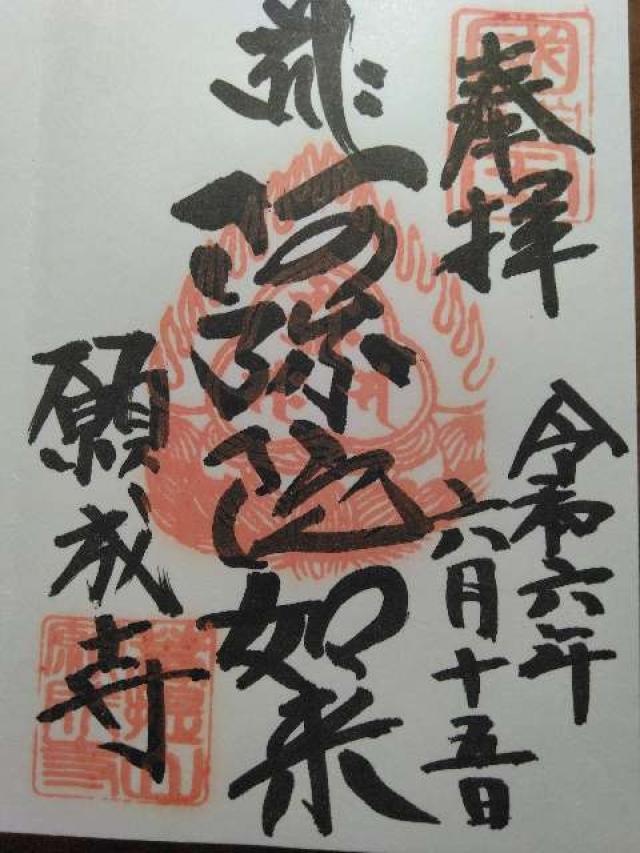 奉拝
令和六年
六月十五日
阿弥陀如来
願成寺